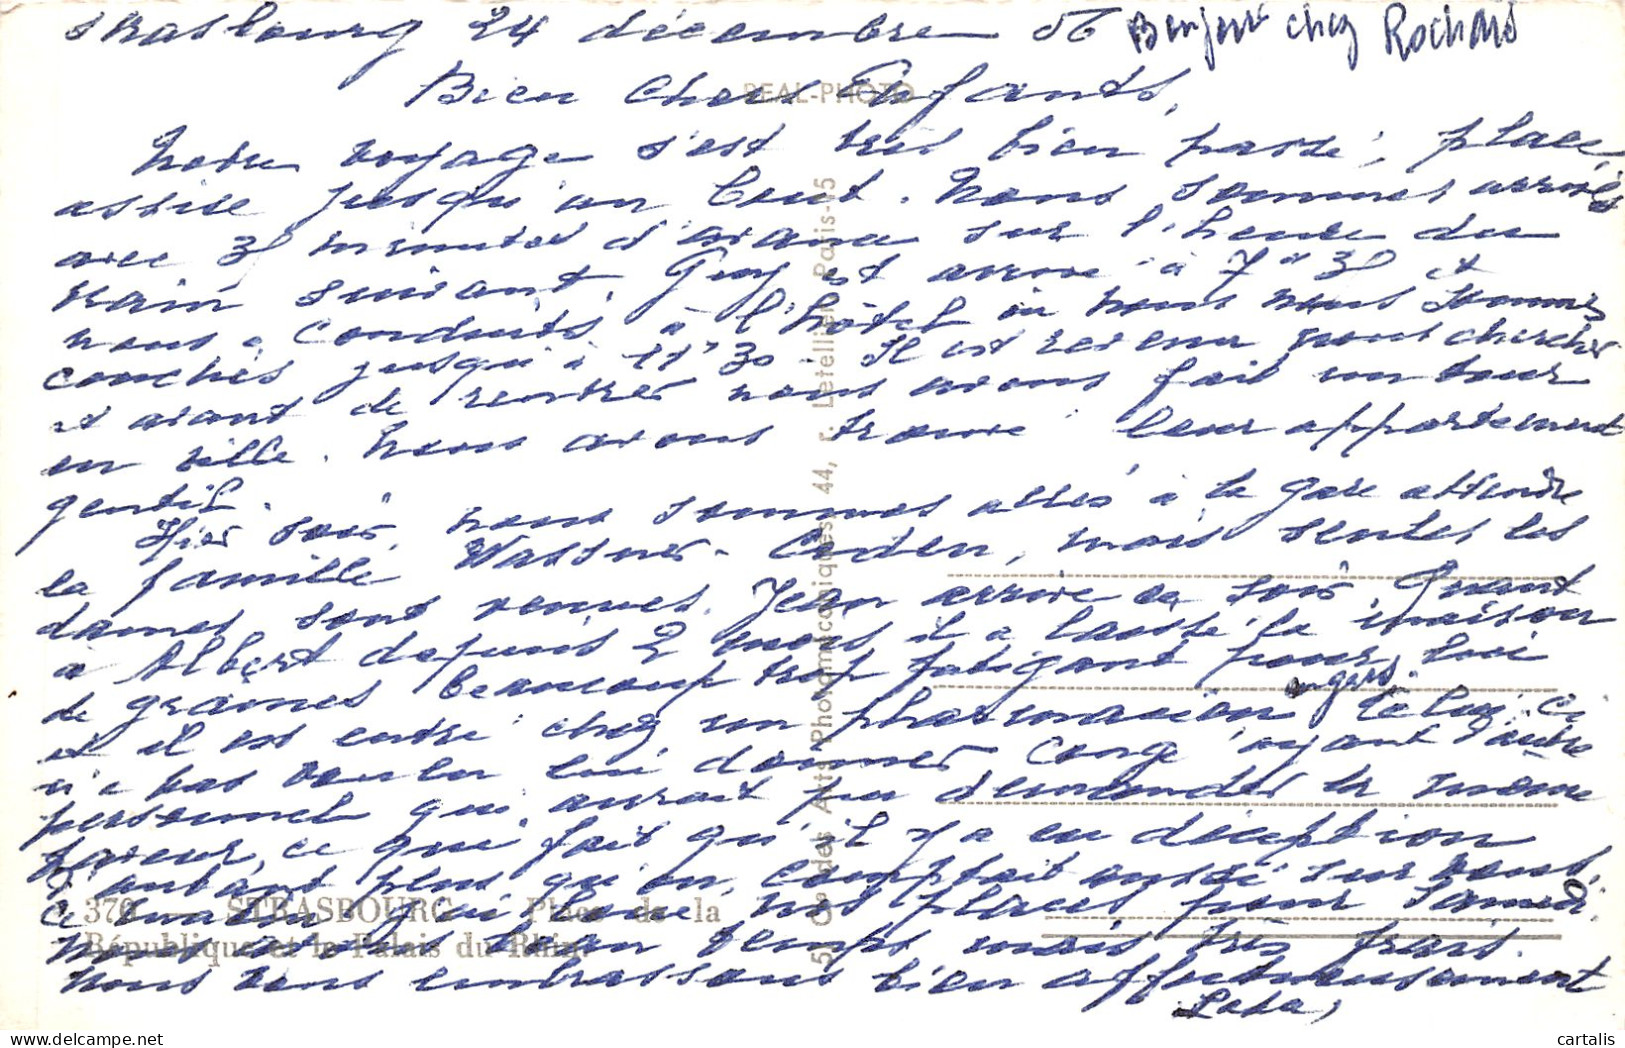 Strasbourg 24 décembre 56 Bonjour chez Rochard
REAL-PHOTO
Bien chers Enfants,
Notre voyage s'est très bien passé, place
assise jusqu'au bout. Nous sommes arrivés
avec 35 minutes d'avance sur l'heure du
train suivant. Guy est arrivé à 7h 35 et
nous a conduits à l'hôtel où nous nous sommes
couchés jusqu'à 11h 30. Il est revenu nous chercher
et avant de rentrer nous avons fait un tour
en ville. Nous avons trouvé leur appartement
gentil.
Hier soir, nous sommes allés à la gare attendre
la famille Wassner, mais seules les
dames sont venues. Jean arrive ce soir. Quant
à Albert depuis 2 mois il a laissé la maison
de graines beaucoup trop fatigant pour lui
et il est entré chez un pharmacien Angers. Celui-ci
n'a pas voulu lui donner congé ayant d'autre
personnel qui aurait pu demander la même
faveur, ce que fait qu'il y a eu déception
d'autant plus qu'on comptait aussi sur vous.
Ce matin j'ai loué nos places pour Samedi.
Nous avons beau temps mais très frais.
Nous vous embrassons bien affectueusement
379 — STRASBOURG — Place de la
République et le Palais du Rhin.
5 Cie des Arts Photomécaniques 44, r. Letellier, Paris-15
cartalis.com